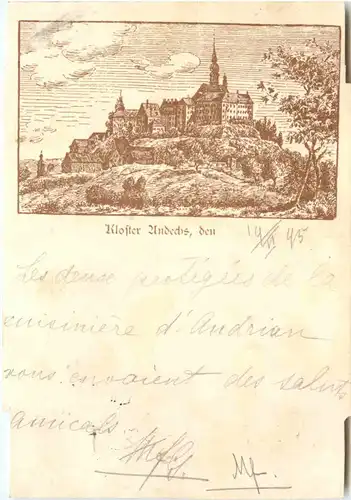 Kloster Andechs, den 19/II 95
Les deux protégées de la
cuisinière d'Andrian
vous envoient des saluts
amicals.